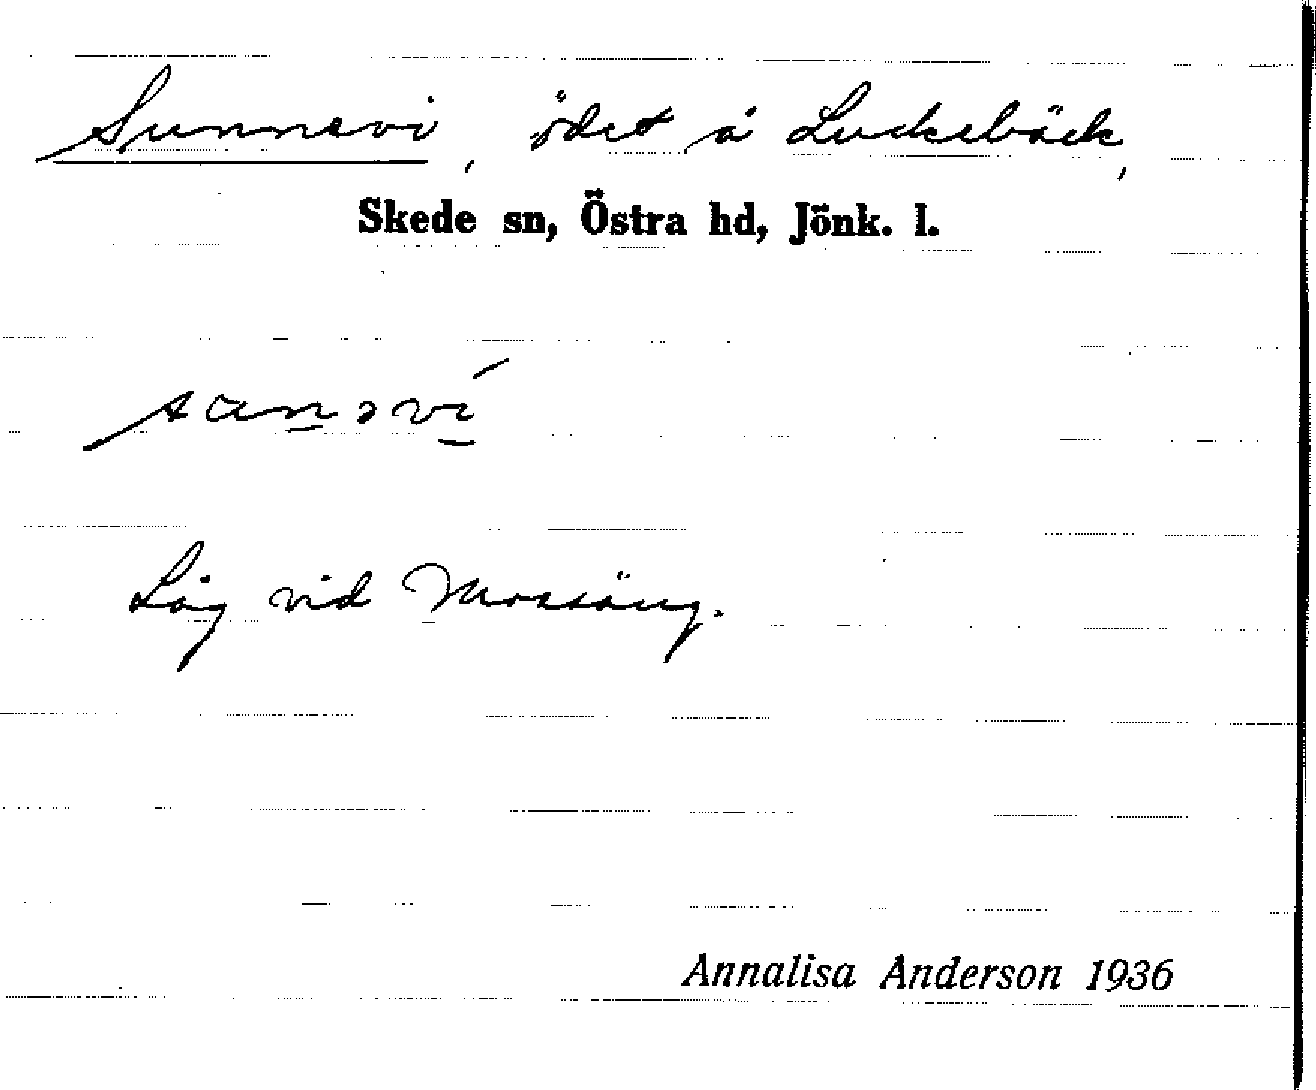 Sunnevi, ödet å Luckebäck,
Skede sn, Östra hd, Jönk. l.
Låg vid Mossäng.
Annalisa Anderson 1936